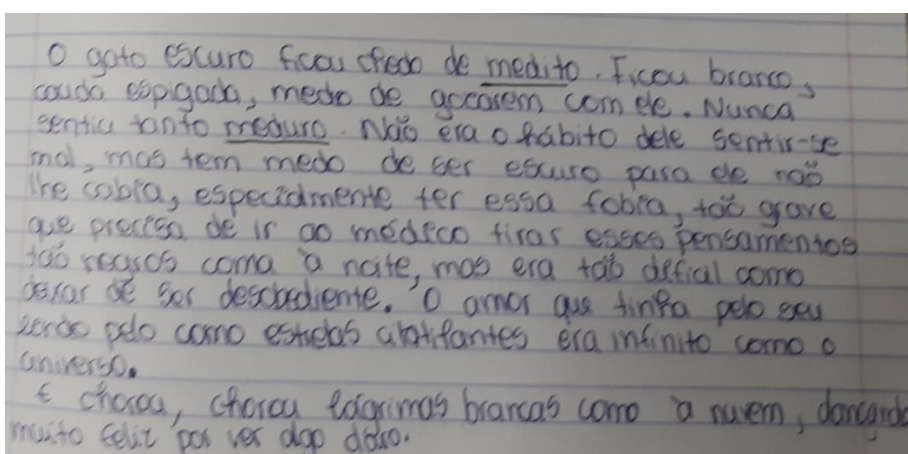 O gato escuro ficou cheio de medito. Ficou branco,
cauda espigada, medo de gozarem com ele. Nunca
sentiu tanto meduro. Não era o hábito dele sentir-se
mal, mas tem medo de ser escuro para ele não
lhe cabia, especialmente ter essa fobia, tão grave
que precisa de ir ao médico tirar esses pensamentos
tão negros como a noite, mas era tão difícil como
deixar de ser desobediente. O amor que tinha pelo seu
lindo pelo como estrelas cintilantes era infinito como o
universo.
E chorou, chorou lágrimas brancas como a nuvem, dançando
muito feliz por ver algo claro.